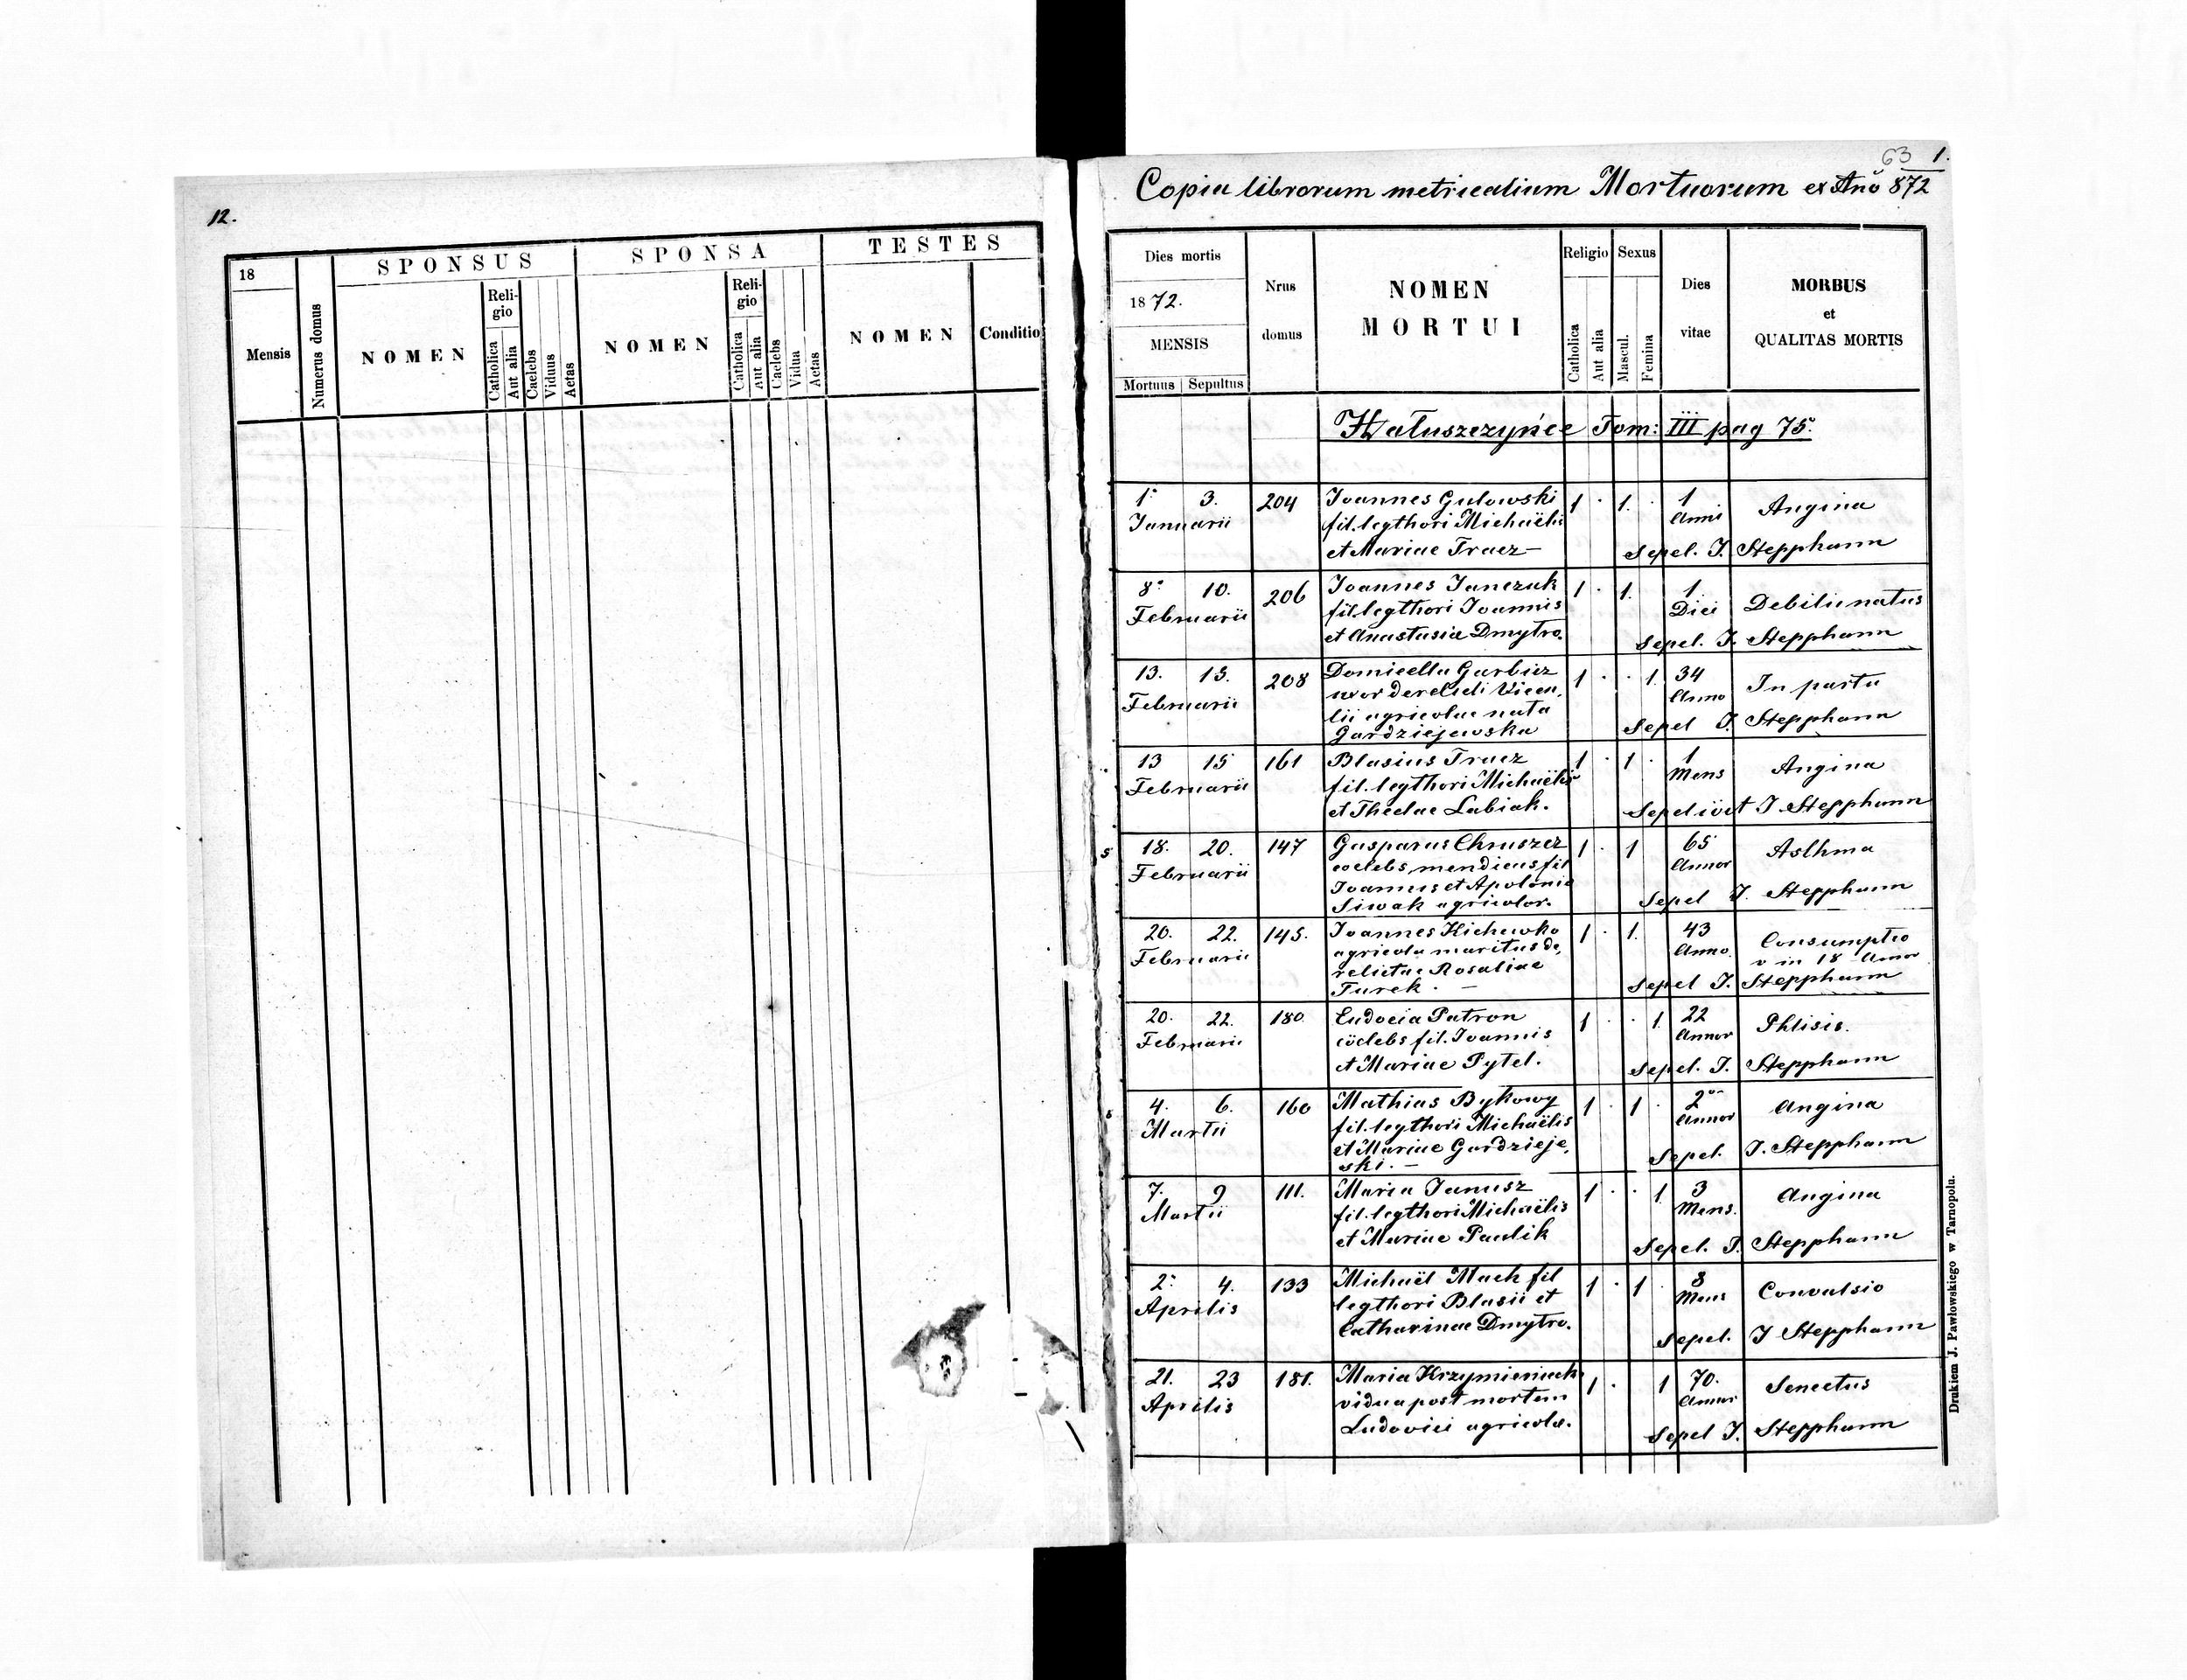 12.
18
Mensis
Numerus domus
SPONSUS
NOMEN
Reli-
gio
Catholica
Aut alia
Caelebs
Viduus
Aetas
SPONSA
NOMEN
Reli-
gio
Catholica
Aut alia
Caelebs
Vidua
Aetas
TESTES
NOMEN
Conditio
63 1.
Copia librorum metricalium Mortuorum ex Ano 872
Dies mortis
1872.
MENSIS
Mortuus Sepultus
Nrus
domus
NOMEN
MORTUI
Religio
Catholica
Aut alia
Sexus
Mascul.
Femina
Dies
vitae
MORBUS
et
QUALITAS MORTIS
Hałuszczyńce Tom: III pag 75.
1. 3. 204 Joannes Gulowski 1 . 1. . 1 Angina
Januarii fil. legthori Michaëlis Anni
et Mariae Tracz — Sepel. J. Stepphann
8. 10. 206 Joannes Janczuk 1 . 1. 1. Debilis natus
Februarii fil. legthori Joannis Diei
et Anastasiae Dmytro. Sepel. J. Stepphann
13. 15. 208 Domicella Garbicz 1 . . 1. 34 In partu
Februarii uxor derelicti Vicen, Anno
tii agricolae nata
Gardziejewska Sepel J. Stepphann
13 15 161 Blasius Tracz 1 . 1 . 1 Angina
Februarii fil. legthori Michaëlis Mens
et Theclae Labiak. Sepelivit J. Stepphann
5 18. 20. 147 Gasparus Chruszcz 1 . 1 65 Asthma
Februarii coelebs, mendicus fil Annor
Joannis et Apolonia
Siwak agricolor. Sepel J. Stepphann
20. 22. 145. Joannes Kichewko 1 . 1. 43 Consumptio
Februarii agricola maritus de, Anno. v in 18 Anno
relictae Rosaliae
Turek. — Sepel J. Stepphann
20. 22. 180. Eudocia Patron 1 . . 1. 22 Phtisis.
Februarii cölebs fil. Joannis Annor
et Mariae Pytel. Sepel. J. Stepphann
4. 6. 160 Mathias Bykowy 1 . 1 . 2 Angina
Martii fil. legthori Michaëlis Annor
et Mariae Gardzieje,
ski. — Sepel. J. Stepphann
7. 9 111. Maria Janusz 1 . . 1. 3 Angina
Martii fil. legthori Michaëlis Mens.
et Mariae Paulik Sepel. J. Stepphann
2. 4. 133 Michaël Mack fil 1 . 1 . 8 Convulsio
Aprilis legthori Blasii et Mens
Catharinae Dmytro. Sepel. J Stepphann
21. 23 181. Maria Krzymieniuch 1 . 1 70. Senectus
Aprilis vidua post mortem Annor
Ludovici agricolae. Sepel J. Stepphann
Drukiem J. Pawłowskiego w Tarnopolu.